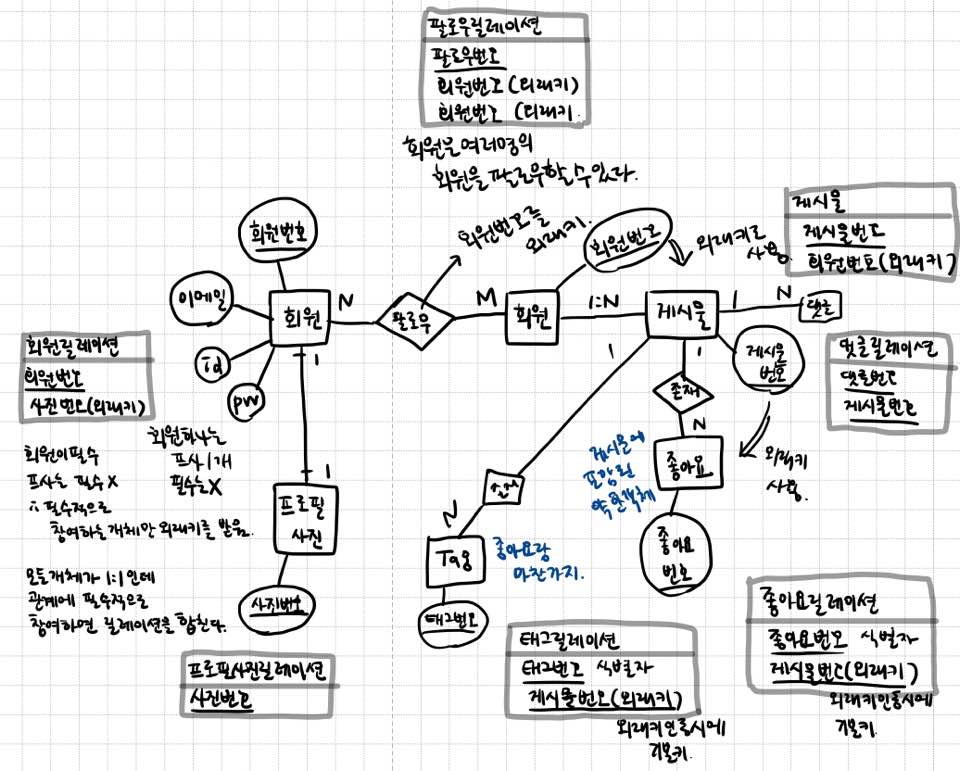 팔로우릴레이션
팔로우번호
회원번호 (외래키)
회원번호 (외래키
회원은 여러명의
회원을 팔로우할 수 있다.
회원번호를
외래키.
회원번호
회원번호
외래키로
사용.
게시물
게시물번호
회원번호(외래키)
이메일
회원
N
팔로우
M
회원
1:N
게시물
1
N
댓글
id
pw
1
1
1
존재
N
게시물
번호
회원릴레이션
회원번호
사진번호(외래키)
댓글릴레이션
댓글번호
게시물번호
회원이 필수
프사는 필수 X
∴ 필수적으로
참여하는 개체만 외래키를 받음.
회원하나는
프사 1개
필수는 X
1
프로필
사진
게시물에
포함된
약한객체
좋아요
외래키
사용.
N
Tag
좋아요랑
마찬가지.
좋아요
번호
모든개체가 1:1 인데
관계에 필수적으로
참여하면 릴레이션을 합친다.
사진번호
태그번호
프로필사진릴레이션
사진번호
태그릴레이션
태그번호 식별자
게시물번호(외래키)
외래키인동시에
기본키.
좋아요릴레이션
좋아요번호 식별자
게시물번호(외래키)
외래키인동시에
기본키.